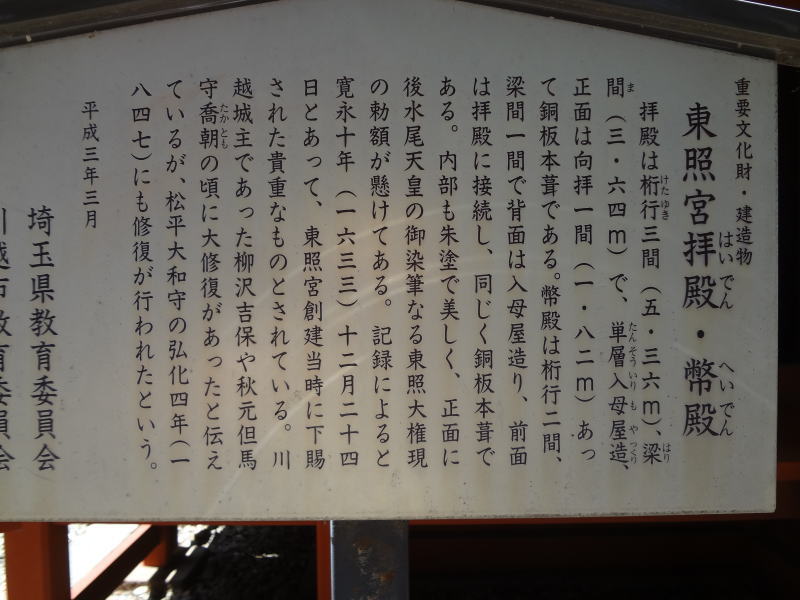 重要文化財・建造物
東照宮拝殿・幣殿
はいでん
へいでん
拝殿は桁行三間（五・三六m）、梁
けたゆき
はり
間（三・六四m）で、単層入母屋造、
ま
たんそういりもやづくり
正面は向拝一間（一・八二m）あっ
て銅板本葺である。幣殿は桁行二間、
梁間一間で背面は入母屋造り、前面
は拝殿に接続し、同じく銅板本葺で
ある。内部も朱塗で美しく、正面に
後水尾天皇の御染筆なる東照大権現
の勅額が懸けてある。記録によると
寛永十年（一六三三）十二月二十四
日とあって、東照宮創建当時に下賜
された貴重なものとされている。川
越城主であった柳沢吉保や秋元但馬
守喬朝の頃に大修復があったと伝え
たかとも
ているが、松平大和守の弘化四年（一
八四七）にも修復が行われたという。
平成三年三月
埼玉県教育委員会
川越市教育委員会